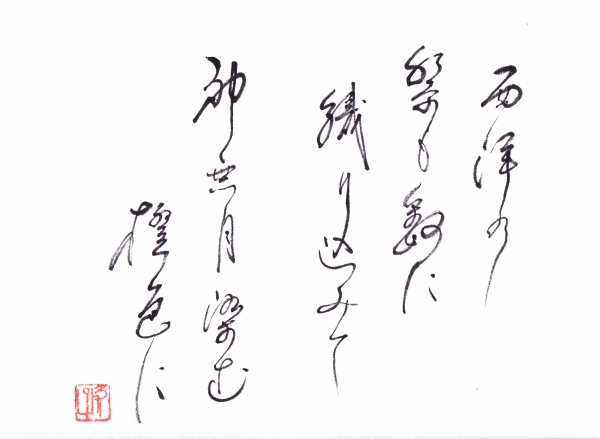 西洋の
祭も数に
織り込みて
神無月染む
橙色に